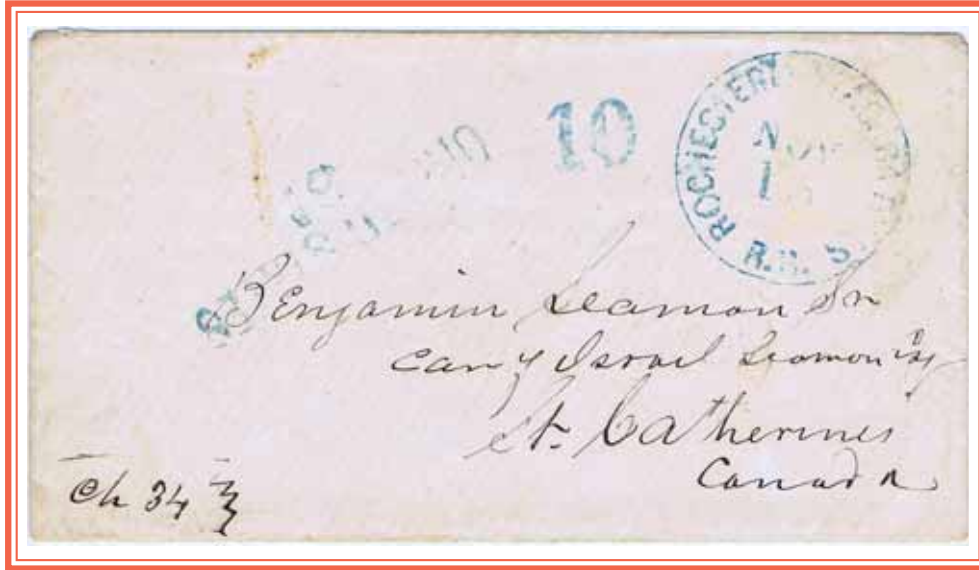 10
ROCHESTER
NOV
R.R.
Benjamin Seamon Sr
Care of Israel Seamon Esq
St. Catherines
Canada
Ch 34